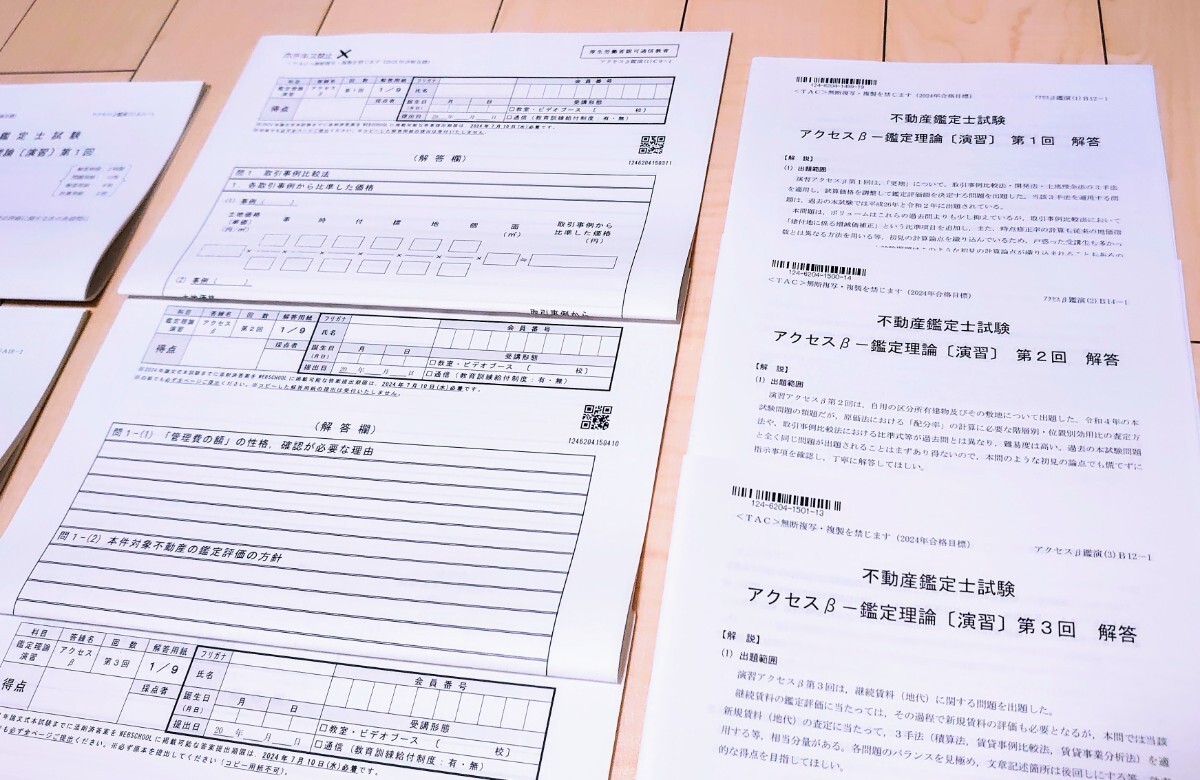 鑑定士試験
理論〔演習〕第1回
厚生労働省認可通信教育
アクセスβ鑑演(1)C9-1
科目
答練名
回数
解答用紙
鑑定理論
演習
アクセス
β
第1回
1/9
得点
採点者
フリガナ
氏名
会員番号
生年月日
(月日)
月
日
受講形態
提出日
20 年 月 日
□教室・ビデオブース 〔 校〕
□通信(教育訓練給付制度:有・無)
1246204150371
(解答欄)
問1 取引事例比較法
1.各取引事例から比準した価格
(1) 事例( )
土地価格
(単価)
(円/㎡)
事
時
付
標
地
個
面
(㎡)
取引事例から
比準した価格
(円)
(2) 事例( )
取引事例から
科目
答練名
回数
解答用紙
鑑定理論
演習
アクセス
β
第2回
1/9
得点
採点者
フリガナ
氏名
会員番号
誕生日
(月日)
月
日
受講形態
提出日
20 年 月 日
□教室・ビデオブース 〔 校〕
□通信(教育訓練給付制度:有・無)
1246204150410
(解答欄)
問1-(1) 「管理費の額」の性格、確認が必要な理由
問1-(2) 本件対象不動産の鑑定評価の方針
科目
答練名
回数
解答用紙
鑑定理論
演習
アクセス
β
第3回
1/9
得点
採点者
フリガナ
氏名
会員番号
誕生日
(月日)
月
日
受講形態
提出日
20 年 月 日
□教室・ビデオブース 〔 校〕
□通信(教育訓練給付制度:有・無)
<TAC>無断複写・複製を禁じます(2024年合格目標)
アクセスβ鑑演(1)B12-1
不動産鑑定士試験
アクセスβ-鑑定理論〔演習〕 第1回 解答
【解 説】
(1) 出題範囲
演習アクセスβ第1回は、「更地」について、取引事例比較法・開発法・土地残余法の3手法
を適用し、試算価格を調整して鑑定評価額を決定する問題を出題した。当該3手法を適用する問
題は、過去の本試験では平成26年と令和2年に出題されている。
本問題は、ボリュームはこれらの過去問よりも少し抑えているが、取引事例比較法において
「建付地に係る増減価補正」という比準項目を追加し、また、時点修正率の計算も従来の地価指
数とは異なる方法を用いる等、初見の計算論点を織り込んでいるため、戸惑った受講生も多かっ
124-6204-1500-14
<TAC>無断複写・複製を禁じます(2024年合格目標)
アクセスβ鑑演(2)B14-1
不動産鑑定士試験
アクセスβ-鑑定理論〔演習〕 第2回 解答
【解 説】
(1) 出題範囲
演習アクセスβ第2回は、自用の区分所有建物及びその敷地について出題した。令和4年の本
試験問題の類題だが、原価法における「配分率」の計算に必要な階層別・位置別効用比の査定方
法や、取引事例比較法における比準式等が過去問とは異なり、難易度は高い。過去の本試験問題
と全く同じ問題が出題されることはまずあり得ないので、本問のような初見の論点でも慌てずに
指示事項を確認し、丁寧に解答してほしい。
124-6204-1501-13
<TAC>無断複写・複製を禁じます(2024年合格目標)
アクセスβ鑑演(3)B12-1
不動産鑑定士試験
アクセスβ-鑑定理論〔演習〕第3回 解答
【解 説】
(1) 出題範囲
演習アクセスβ第3回は、継続賃料(地代)に関する問題を出題した。
継続賃料の鑑定評価に当たっては、その過程で新規賃料の評価も必要となるが、本問では当該
新規賃料(地代)の査定に当たって、3手法(積算法、賃貸事例比較法、賃貸事業分析法)を適
用する等、相当分量がある。各問題のバランスを見極め、文章記述箇所は後回しにする等、
的な得点を目指してほしい。